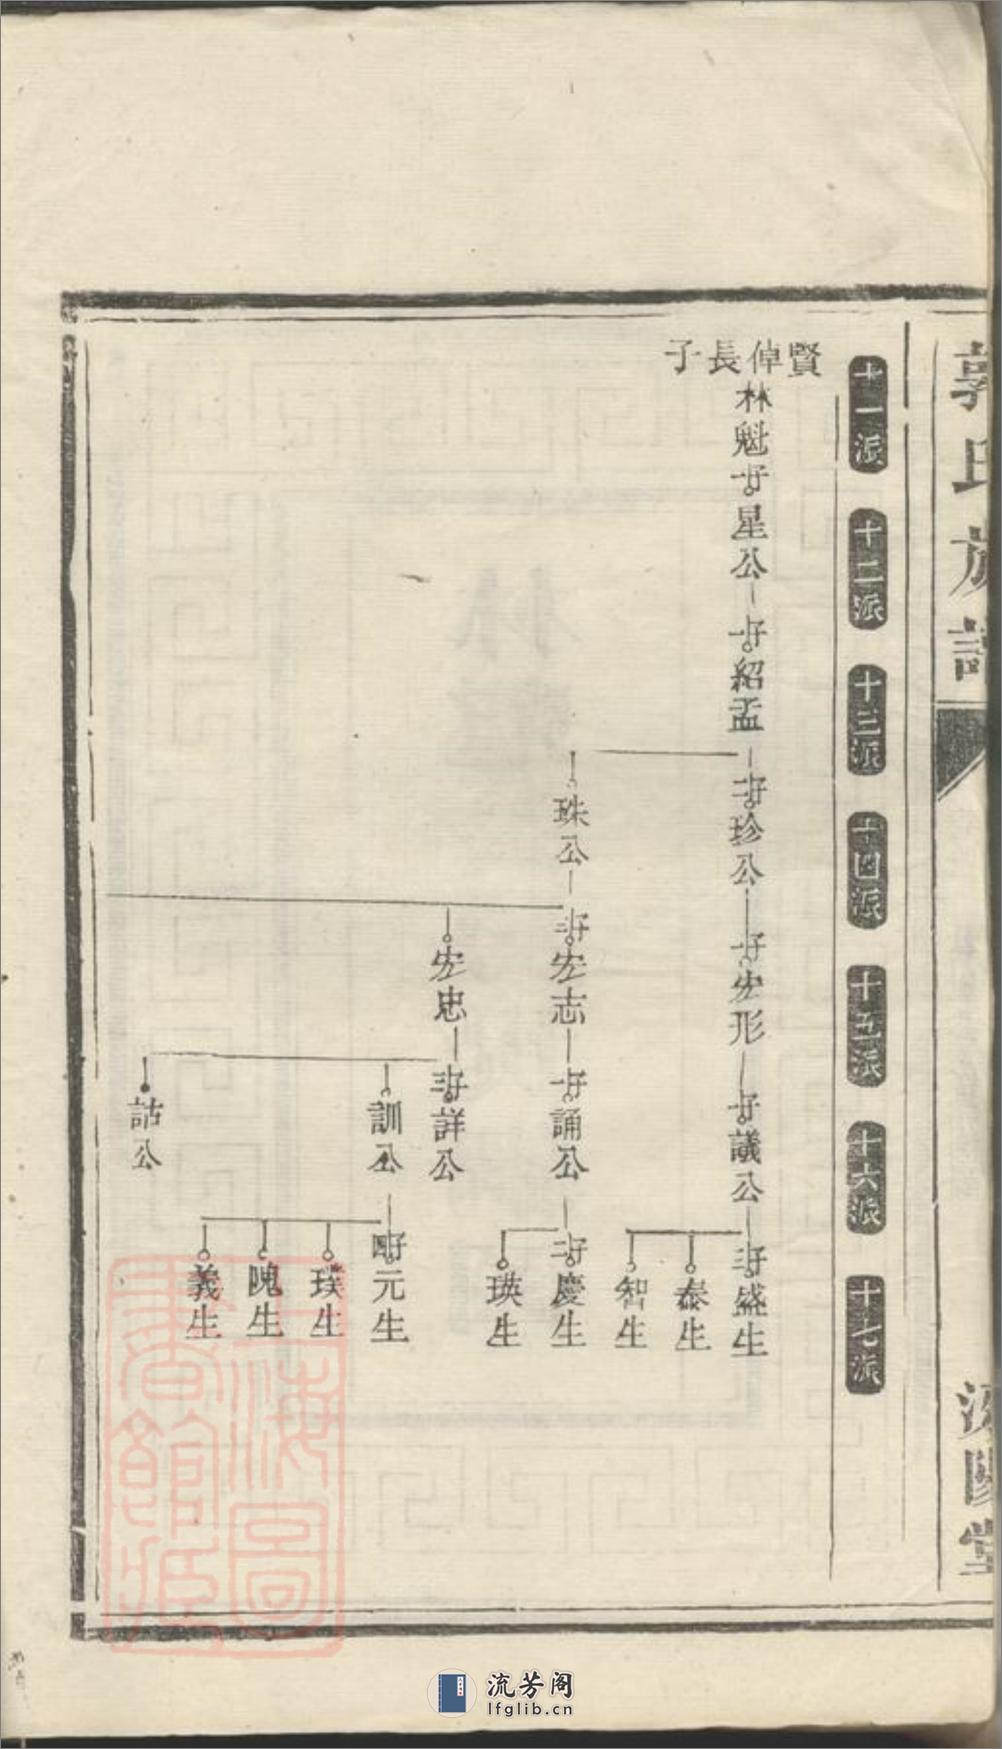 郭氏族譜
汾陽堂
十一派
十二派
十三派
十四派
十五派
十六派
十七派
賢倬長子
林魁 一子 星公 一子 紹孟 二子 珍公 一子 宏形 一子 議公 三子 盛生
泰生
智生
珠公 三子 宏志 一子 誦公 二子 慶生
瑛生
宏忠 三子 詳公
訓公 四子 元生
璞生
瑰生
義生
詁公
上海圖書館藏
流芳阁
lfglib.cn